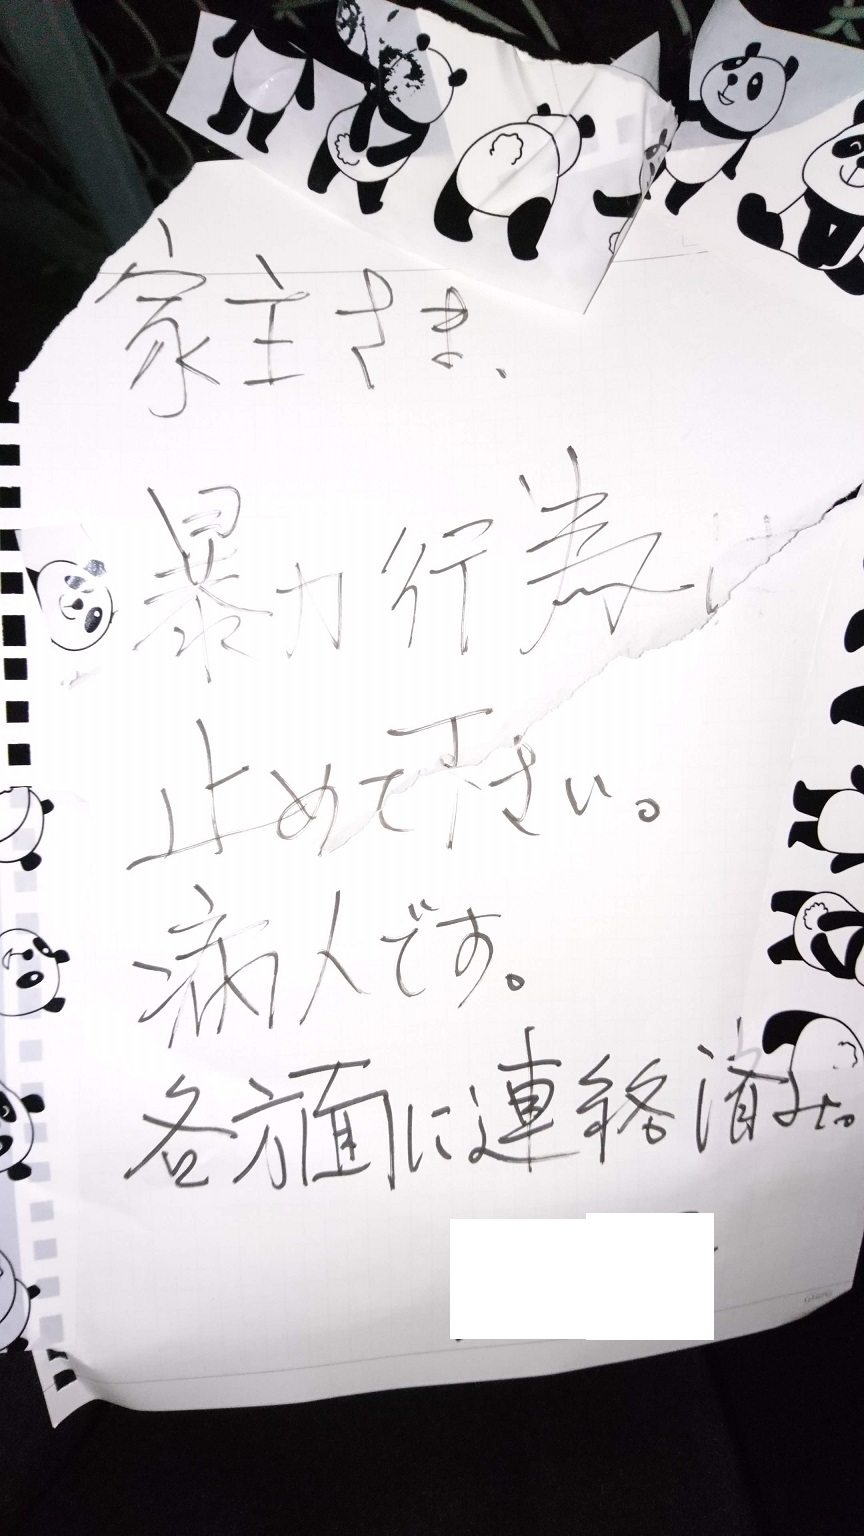 家主さま、
暴力行為、
止めて下さい。
病人です。
各方面に連絡済み。